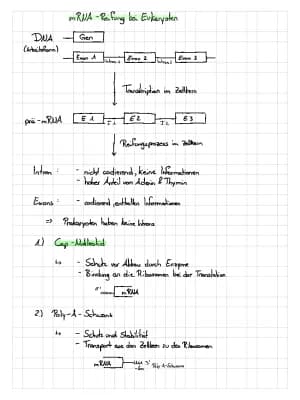 mRNA - Reifung bei Eukaryoten
DNA
Gen
(Arbeitsform)
Exon 1 Intron 1 Exon 2 Intron 2 Exon 3
Transkription im Zellkern
prä-mRNA
E 1 I 1 E 2 I 2 E 3
Reifungsprozess im Zellkern
Intron: - nicht codierend, keine Informationen
- hoher Anteil von Adenin & Thymin
Exons: - codierend, enthalten Informationen
=> Prokaryoten haben keine Introns
1.) Cap-Nukleotid
- Schutz vor Abbau durch Enzyme
- Bindung an die Ribosomen bei der Translation
5' mRNA
2.) Poly-A-Schwanz
- Schutz und Stabilität
- Transport aus dem Zellkern zu den Ribosomen
mRNA 3' Poly A-Schwanz